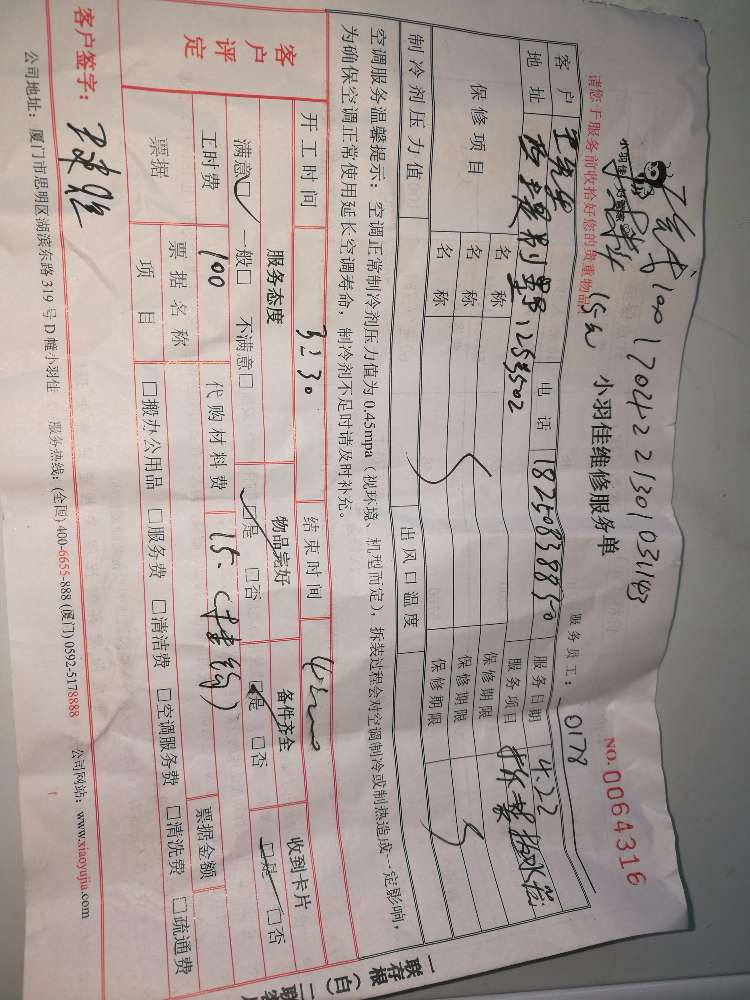 100 17042221301031143
15元
小羽佳 好管家
请您于服务前收拾好您的贵重物品
小羽佳维修服务单
NO.0064316
服务员工： 0178
客户 电话 18250838850 服务日期 4.22
地址 服务项目
保修项目 名称 名称 保修期限
名称 保修期限
名称 保修期限
制冷剂压力值 出风口温度
空调服务温馨提示：空调正常制冷剂压力值为0.45mpa（视环境、机型而定），拆装过程会对空调制冷或制热造成一定影响，
为确保空调正常使用延长空调寿命，制冷剂不足时请及时补充。
开工时间 3:30 结束时间 4:00
客户评定 服务态度 物品完好 备件齐全 收到卡片
满意□ 一般□ 不满意□ □是 □否 □是 □否 □是 □否
工时费 100 代购材料费 15.
票据 票据名称 票据金额
项目 □搬办公用品 □服务费 □清洁费 □空调服务费 □清洗费 □疏通费
客户签字：
公司地址：厦门市思明区湖滨东路319号D幢小羽佳 服务热线：(全国)400-6655-888 (厦门)0592-5178888 公司网站：www.xiaoyujia.com
一联存根（白）二联客